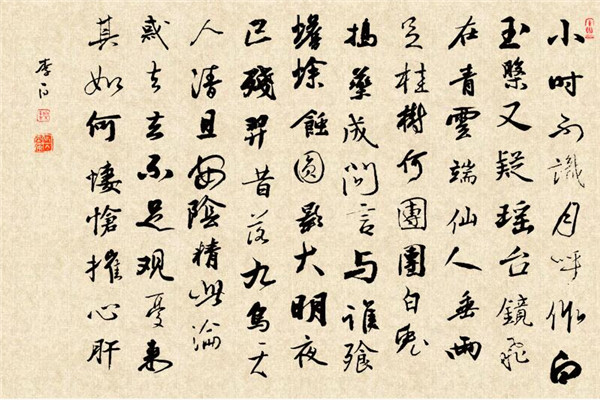 小时不識月呼作白
玉槃又疑瑶台鏡飛
在青雲端仙人垂兩
足桂樹何團團白兔
搗藥成問言与誰飱
蟾蜍蝕圓影大明夜
已殘羿昔落九烏天
人清且安陰精此淪
惑去去不足观憂来
其如何悽愴摧心肝